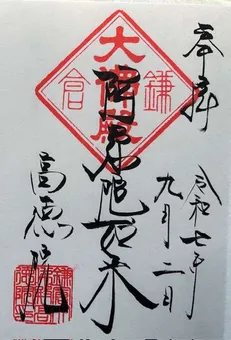 奉拝
令和七年
九月二日
阿弥陀如来
大佛殿
鎌倉
高徳院